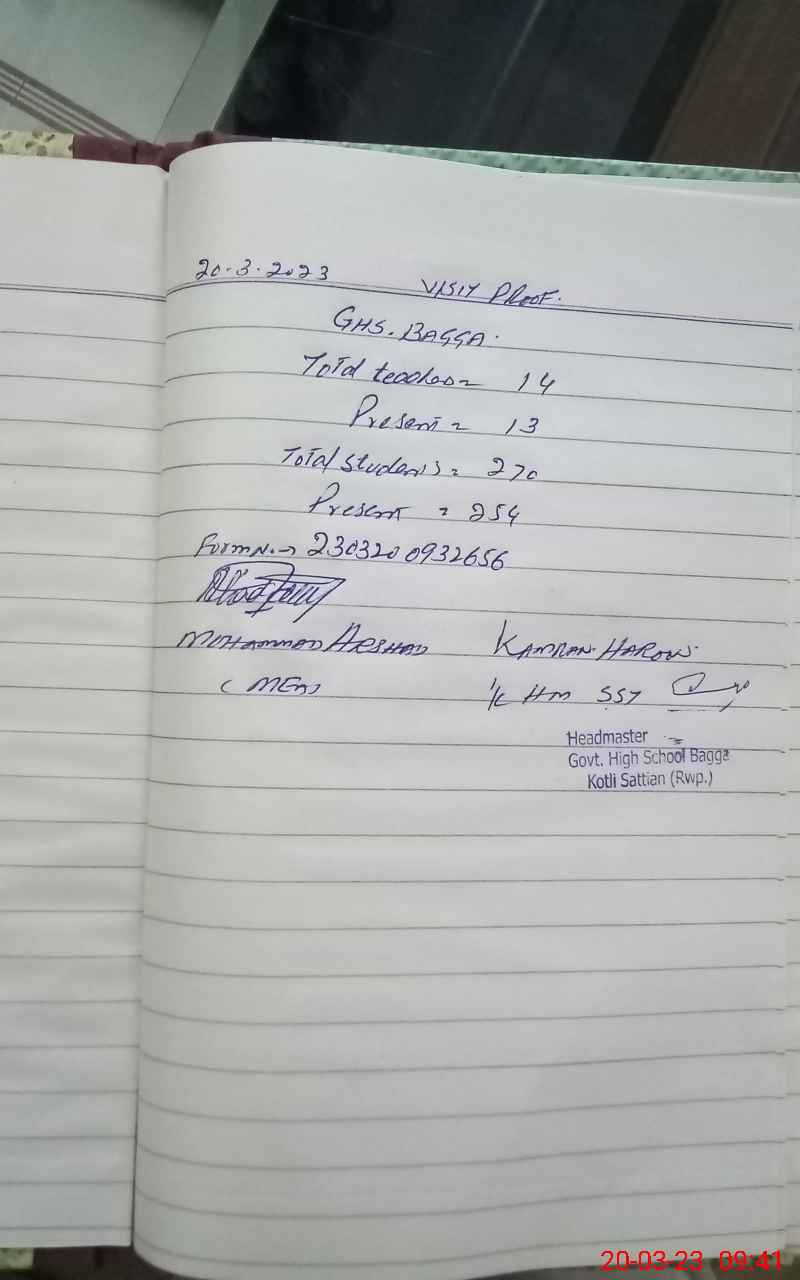 20.3.2023
VISIT PROOF.
GHS. BAGGA.
Total teachers = 14
Present = 13
Total students = 270
Present = 254
Form No. → 2303200932656
MOHAMMAD ARSHAD KAMRAN HAROON
(MEA) I/C HM SST
Headmaster
Govt. High School Bagga
Kotli Sattian (Rwp.)
20-03-23 09:41